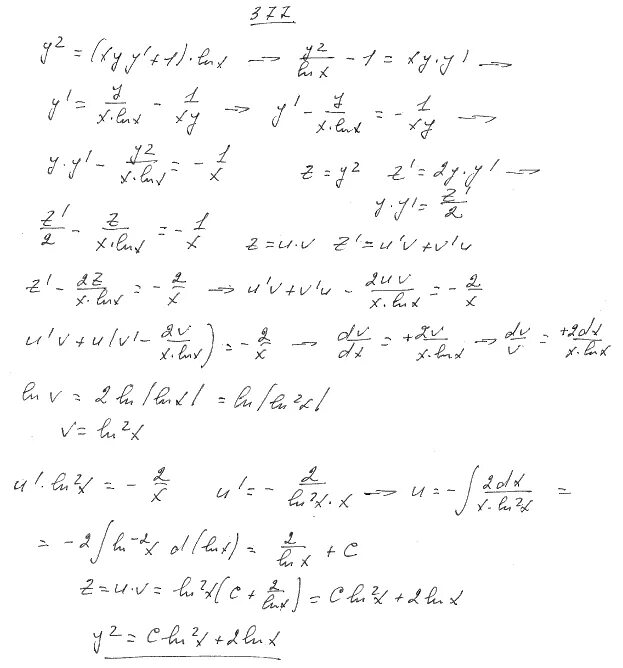 377
y² = (xyy'+1)·lnx → y²/lnx - 1 = xy·y' →
y' = y/(x·lnx) - 1/(xy) → y' - y/(x·lnx) = - 1/(xy) →
y·y' - y²/(x·lnx) = - 1/x z = y² z' = 2y·y' →
y·y' = z'/2
z'/2 - z/(x·lnx) = - 1/x z = u·v z' = u'v + v'u
z' - 2z/(x·lnx) = - 2/x → u'v + v'u - 2uv/(x·lnx) = - 2/x
u'v + u(v' - 2v/(x·lnx)) = - 2/x → dv/dx = +2v/(x·lnx) → dv/v = +2dx/(x·lnx)
ln v = 2 ln|lnx| = ln|ln²x|
v = ln²x
u'·ln²x = - 2/x u' = - 2/(ln²x·x) → u = -∫ 2dx/(x·ln²x) =
= -2∫ln⁻²x d(lnx) = 2/lnx + C
z = u·v = ln²x(C + 2/lnx) = C ln²x + 2lnx
y² = C ln²x + 2lnx